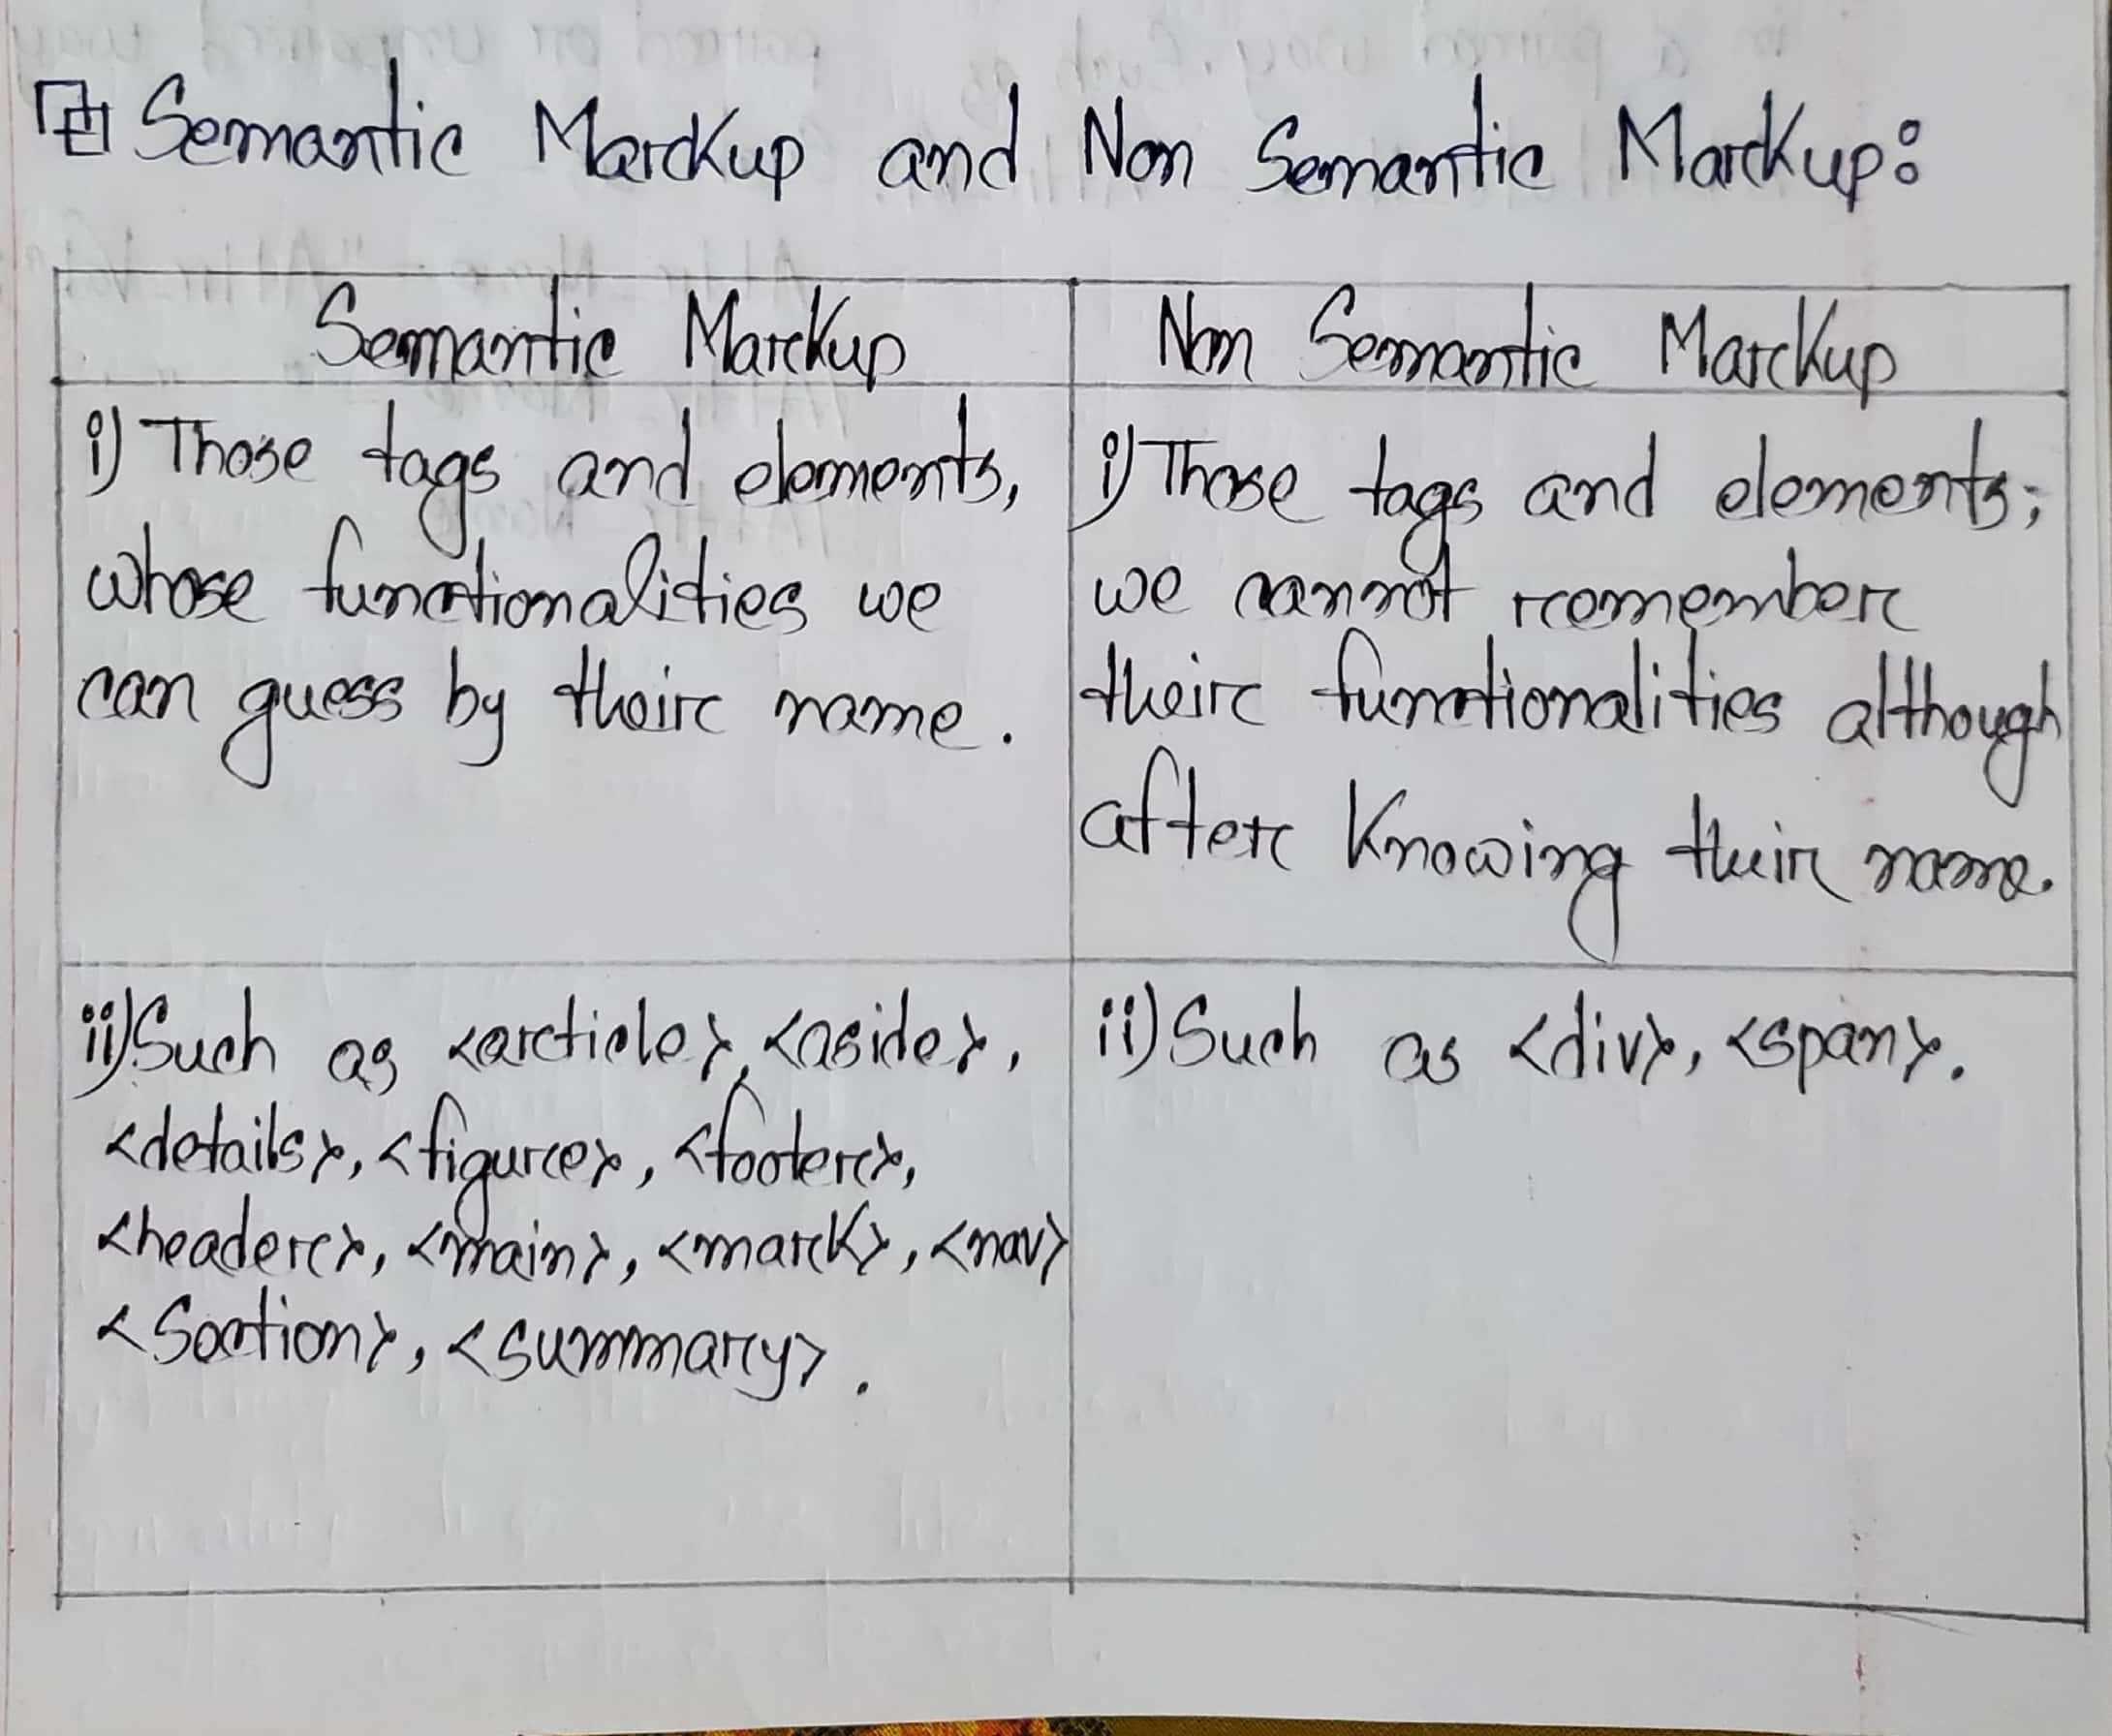 Semantic Markup and Non Semantic Markup:
Semantic Markup
Non Semantic Markup
i) Those tags and elements,
whose functionalities we
can guess by their name.
i) Those tags and elements;
we cannot remember
their functionalities although
after knowing their name.
ii) Such as <article>, <aside>,
<details>, <figure>, <footer>,
<header>, <main>, <mark>, <nav>
<Section>, <summary>.
ii) Such as <div>, <span>.